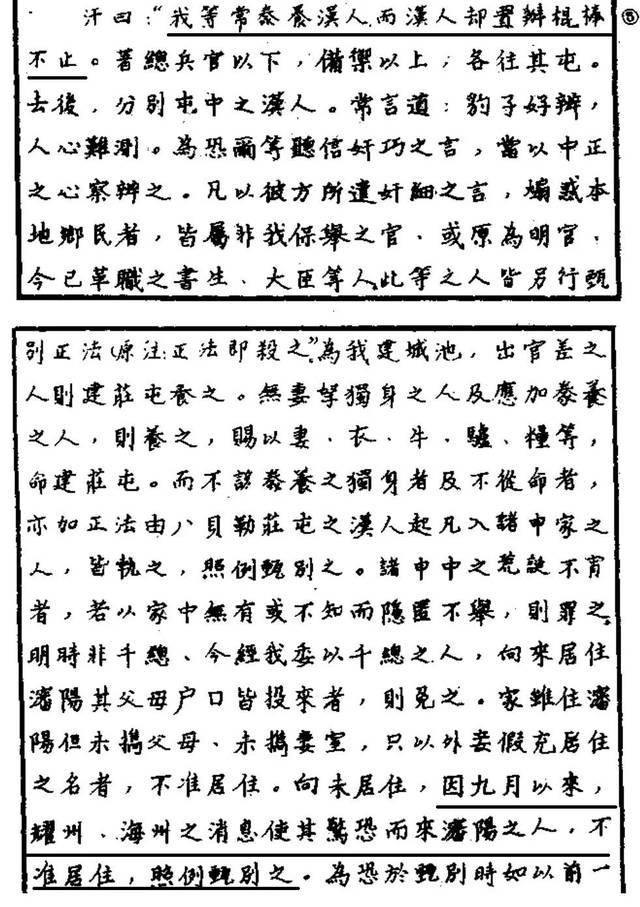 汗曰：“我等常豢养漢人，而漢人却置辦棍棒 ⑤
不止。著總兵官以下，備禦以上，各往其屯。
去後，分别屯中之漢人。常言道：豹子好辦，
人心難測。為恐爾等聽信奸巧之言，當以中正
之心察辦之。凡以彼方所遣奸細之言，煽惑本
地鄉民者，皆屬非我保舉之官、或原為明官、
今已革職之書生、大臣等人。此等之人皆另行甄
别正法（原注：正法即殺之”。為我建城池，出官差之
人則建莊屯養之。無妻孥獨身之人及應加豢養
之人，則養之，賜以妻、衣、牛、驢、糧等，
命建莊屯。而不該豢養之獨身者及不從命者，
亦加正法由八貝勒莊屯之漢人起凡入諸申家之
人，皆執之，照例甄别之。諸申中之荒誕不肖
者，若以家中無有或不知而隐匿不舉，則罪之。
明時非千總、今經我委以千總之人，向來居住
瀋陽其父母户口皆投來者，則免之。家雖住瀋
陽但未攜父母、未攜妻室，只以外妾假充居住
之名者，不准居住。向未居住，因九月以來，
耀州、海州之消息使其驚恐而來瀋陽之人，不
准居住，照例甄别之。為恐於甄别時如以前一